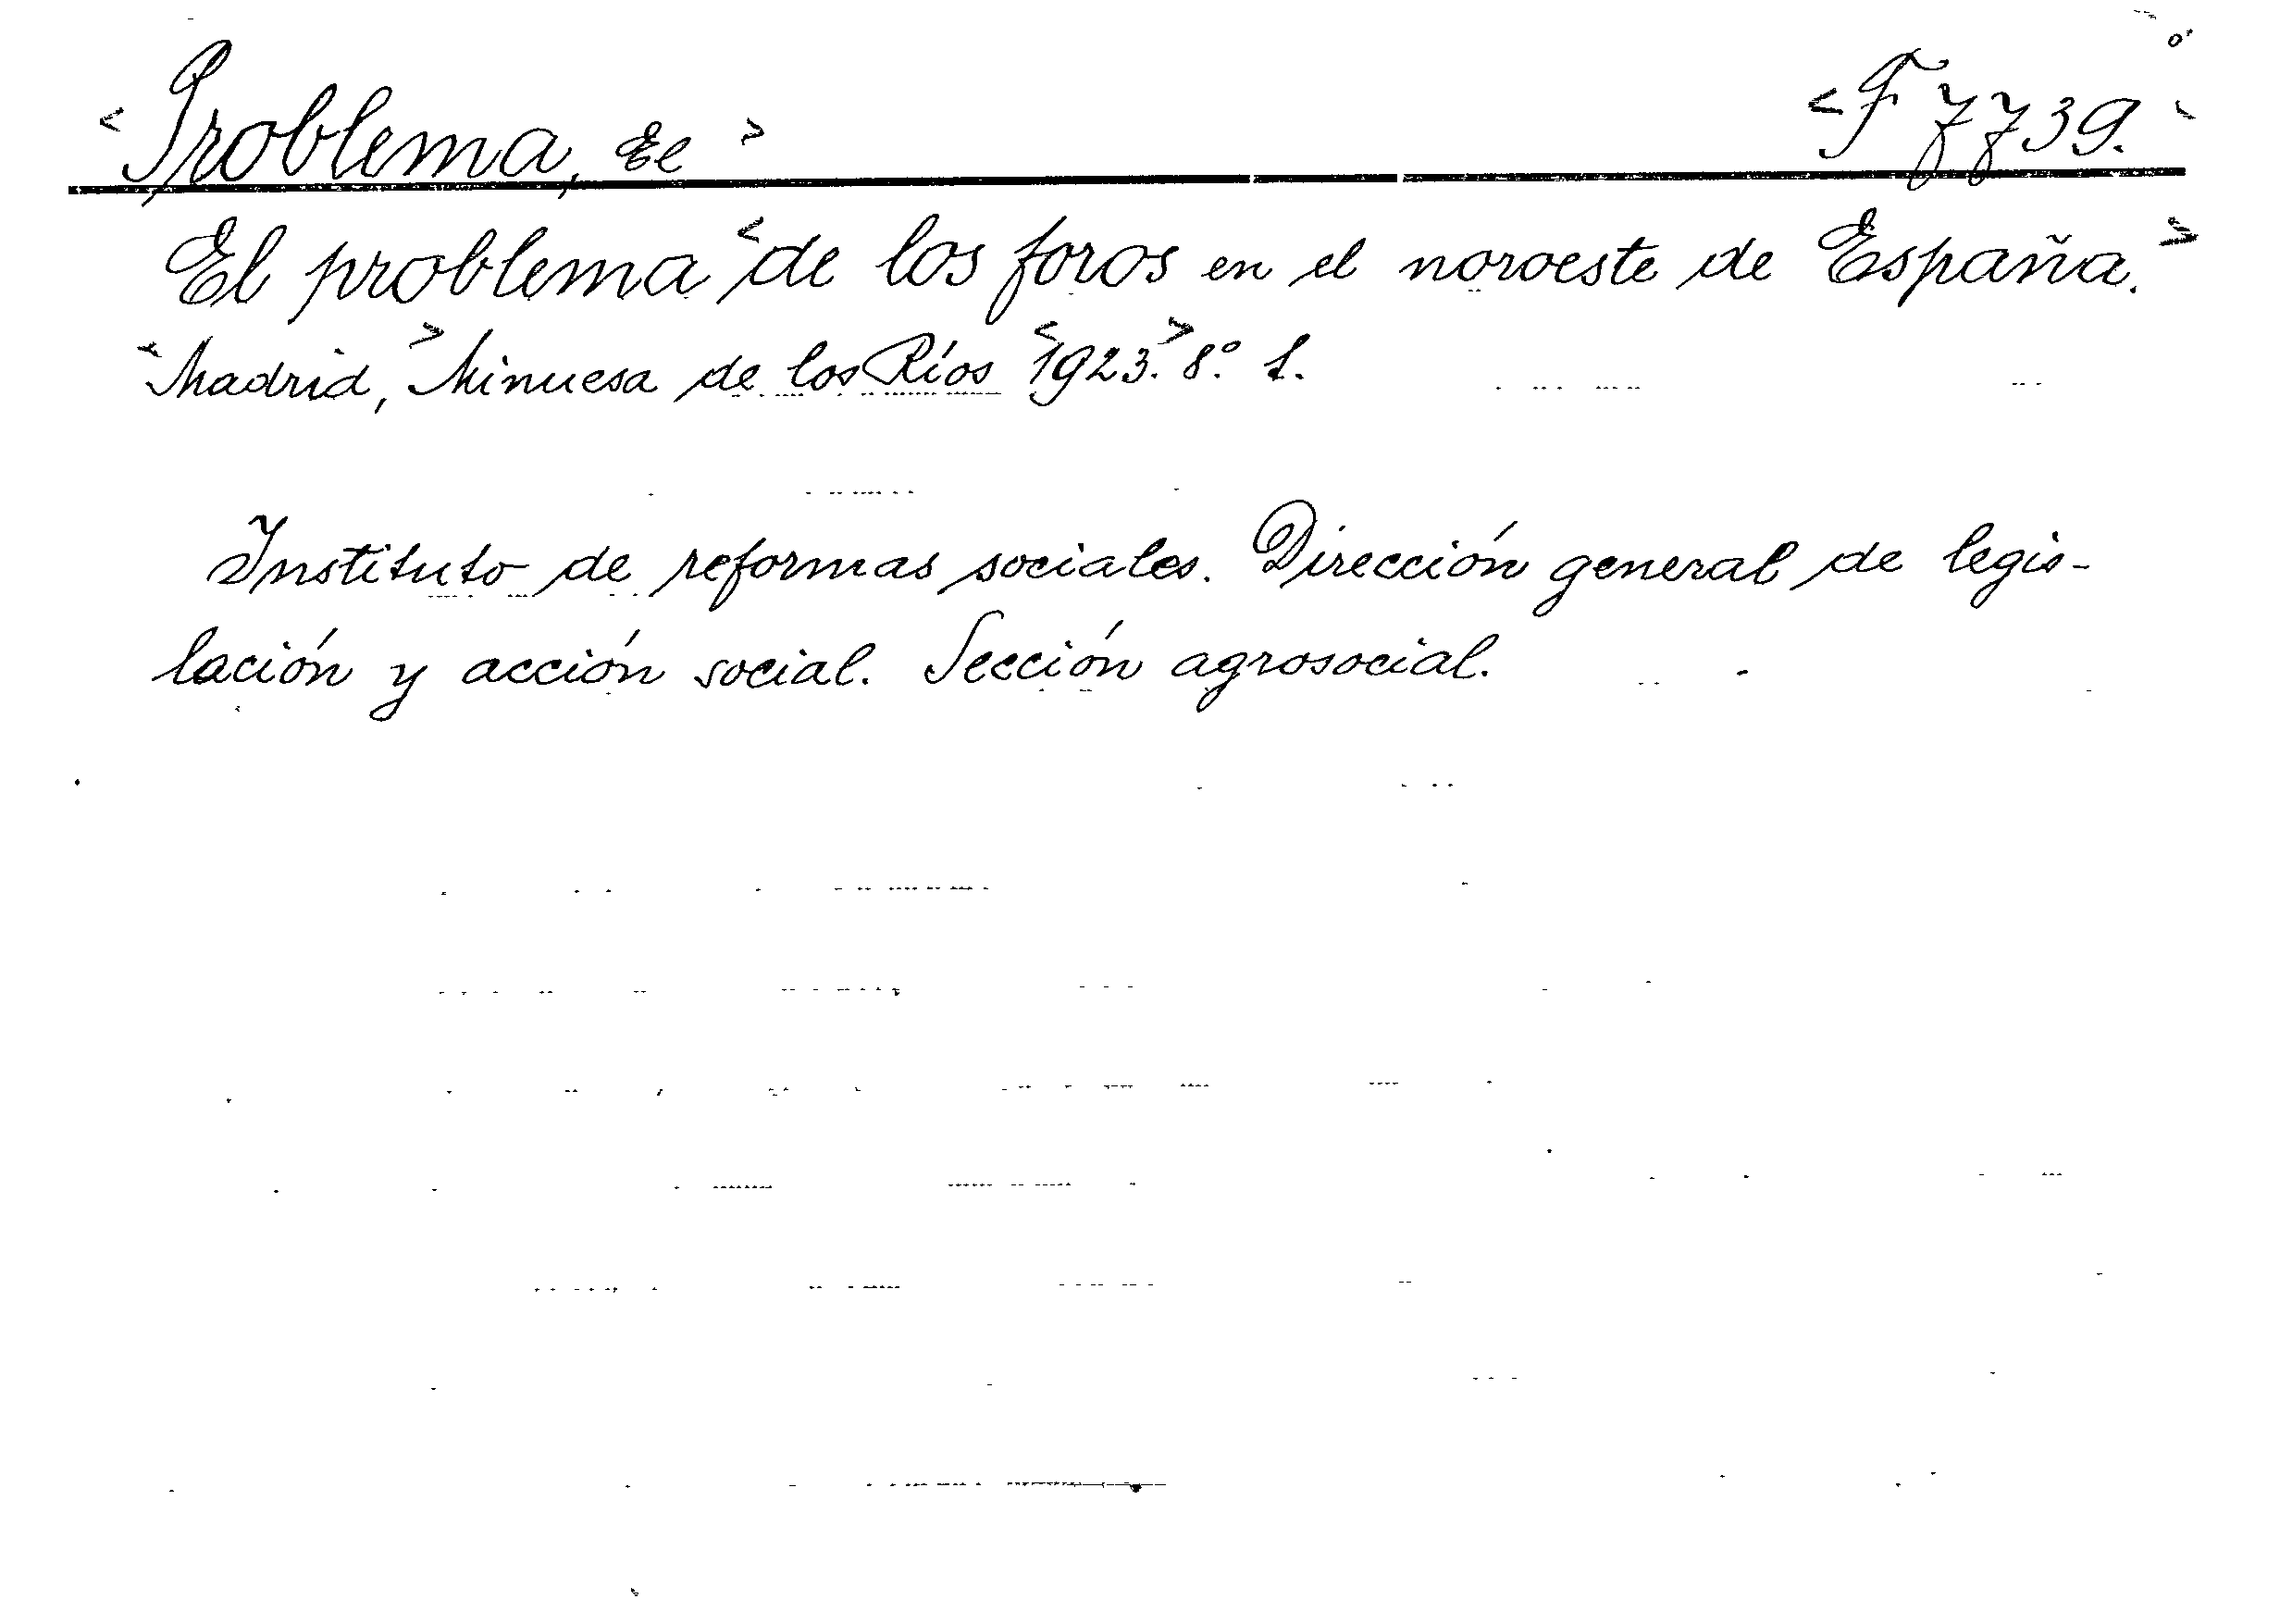 <Problema, El> <F 7739.>
El problema <de los foros en el noroeste de España.>
<Madrid,> Minuesa de los Ríos <1923.> 8.º 1.
Instituto de reformas sociales. Dirección general de legis-
lación y acción social. Sección agrosocial.